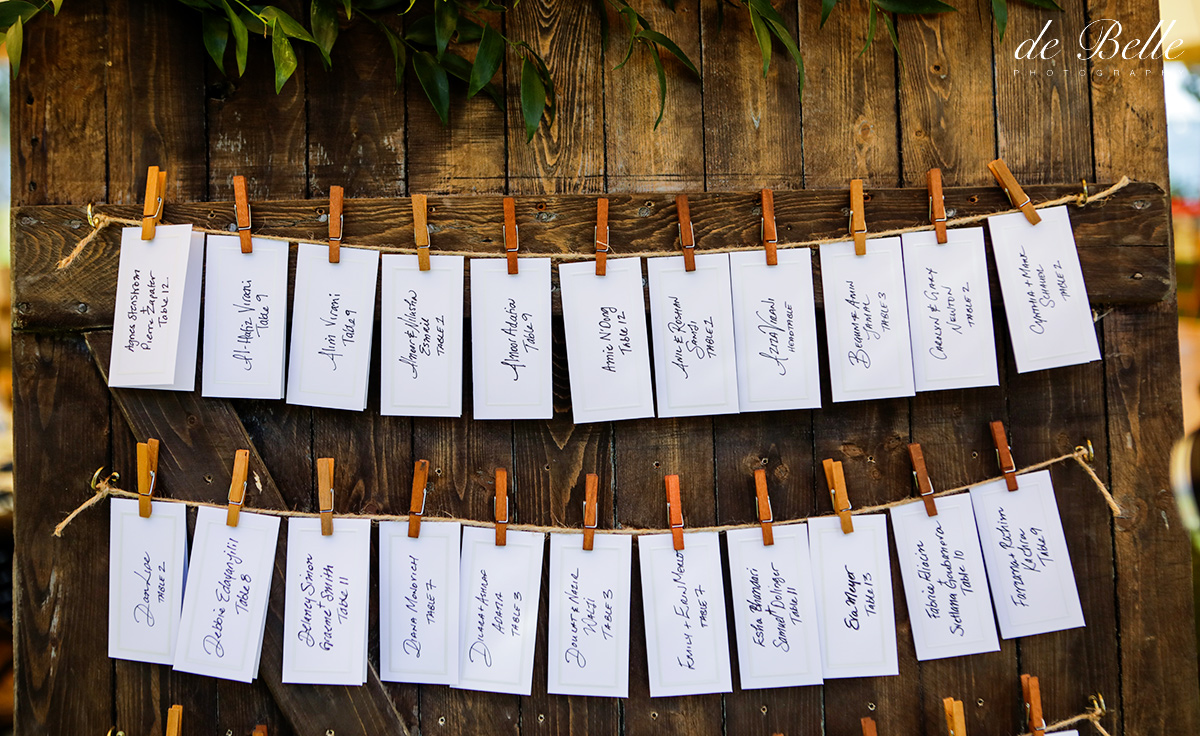 de Belle
PHOTOGRAPHY
Agnes Stenstrom
+
Pierre Zapater
Table 12
Al-Hafiz Virani
Table 9
Alim Virani
Table 9
Amer & Nilufar
Esmail
TABLE 1
Amoor
Table 9
Amie N'Dong
Table 12
ANIL & ROSHAN
TABLE 2
AZIZA VIRANI
HEADTABLE
BEGUM & AMIN
JAMAL
TABLE 3
CAROLYN & GARY
NEWTON
TABLE 2
CYNTHIA + MARK
TABLE 2
Dan Lupe
TABLE 2
Debbie
TABLE 8
Delaney Simon
+
Graeme Smith
TABLE 11
DIANA
TABLE 7
DILARA + ASHRAF
ADATIA
TABLE 3
DOULAT & NAZIR
WALJI
TABLE 3
EMILY + EVAN MERLO
TABLE 7
Esha Bhandari
+
Samuel Dolinger
TABLE 11
Eva Mayer
TABLE 13
Fabrice Feliacin
+
Svetlana
Table 10
FARZANA + RACHIM
KACHRA
TABLE 9